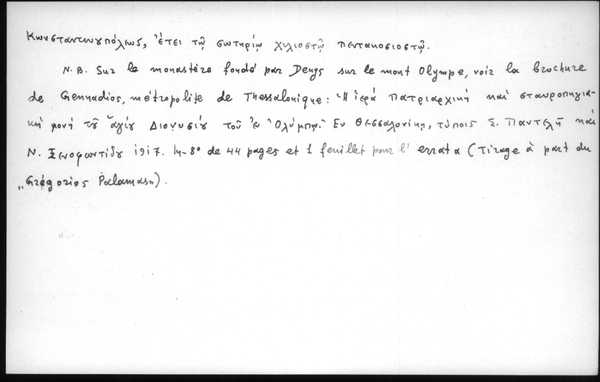 Κωνσταντινουπόλεως, ἔτει τῷ σωτηρίῳ χιλιοστῷ πεντακοσιοστῷ.
N.B. Sur le monastère fondé par Denys sur le mont Olympe, voir la brochure
de Gennadios, métropolite de Thessalonique: Ἡ ἱερά Πατριαρχική καί σταυροπηγια-
κή μονή τοῦ ἁγίου Διονυσίου τοῦ ἐν Ὀλύμπῳ. Ἐν Θεσσαλονίκῃ, τύποις Σ. Παντελῆ καί
Ν. Ξενοφωντίδου 1917. In-8° de 44 pages et 1 feuillet pour l'errata (Tirage à part du
„Grégorios Palamas").